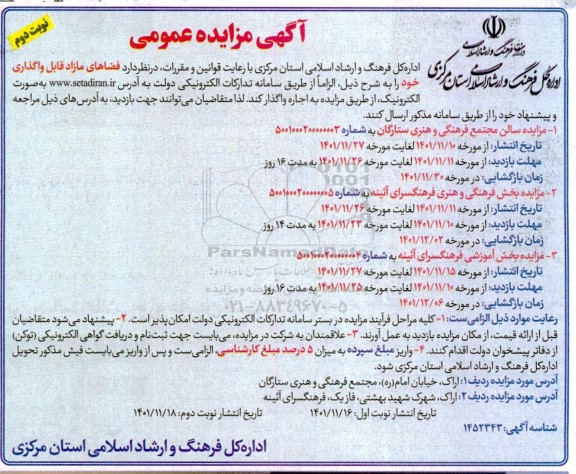 نوبت دوم
آگهی مزایده عمومی
وزارت فرهنگ و ارشاد اسلامی
اداره کل فرهنگ و ارشاد اسلامی استان مرکزی
اداره‌کل فرهنگ و ارشاد اسلامی استان مرکزی با رعایت قوانین و مقررات، درنظردارد فضاهای مازاد قابل واگذاری
خود را به شرح ذیل، الزاماً از طریق سامانه تدارکات الکترونیکی دولت به آدرس www.setadiran.ir به‌صورت
الکترونیک، از طریق مزایده به اجاره واگذار کند. لذا متقاضیان می‌توانند جهت بازدید، به آدرس‌های ذیل مراجعه
و پیشنهاد خود را از طریق سامانه مذکور ارسال کنند.
۱- مزایده سالن مجتمع فرهنگی و هنری ستارگان به شماره ۵۰۰۱۰۰۰۲۰۰۰۰۰۰۰۳
تاریخ انتشار: از مورخه ۱۴۰۱/۱۱/۱۰ لغایت مورخه ۱۴۰۱/۱۱/۲۷
مهلت بازدید: از مورخه ۱۴۰۱/۱۱/۱۱ لغایت مورخه ۱۴۰۱/۱۱/۲۶ به مدت ۱۶ روز
زمان بازگشایی: در مورخه ۱۴۰۱/۱۱/۳۰
۲- مزایده بخش فرهنگی و هنری فرهنگسرای آئینه به شماره ۵۰۰۱۰۰۰۲۰۰۰۰۰۰۰۵
تاریخ انتشار: از مورخه ۱۴۰۱/۱۱/۱۱ لغایت مورخه ۱۴۰۱/۱۱/۲۶
مهلت بازدید: از مورخه ۱۴۰۱/۱۱/۱۰ لغایت مورخه ۱۴۰۱/۱۱/۲۳ به مدت ۱۴ روز
زمان بازگشایی: در مورخه ۱۴۰۱/۱۲/۰۲
۳- مزایده بخش آموزشی فرهنگسرای آئینه به شماره ۵۰۰۱۰۰۰۲۰۰۰۰۰۰۰۴
تاریخ انتشار: از مورخه ۱۴۰۱/۱۱/۱۵ لغایت مورخه ۱۴۰۱/۱۱/۲۷
مهلت بازدید: از مورخه ۱۴۰۱/۱۱/۱۰ لغایت مورخه ۱۴۰۱/۱۱/۲۵ به مدت ۱۶ روز
زمان بازگشایی: در مورخه ۱۴۰۱/۱۲/۰۶
ParsNamadData
۰۲۱-۸۸۳۴۹۶۷۰-۵
رعایت موارد ذیل الزامی‌ست: ۱- کلیه مراحل فرآیند مزایده در بستر سامانه تدارکات الکترونیکی دولت امکان‌پذیر است. ۲- پیشنهاد می‌شود متقاضیان
قبل از ارائه قیمت، از مکان مزایده بازدید به عمل آورند. ۳- علاقمندان به شرکت در مزایده، می‌بایست جهت ثبت‌نام و دریافت گواهی الکترونیکی (توکن)
از دفاتر پیشخوان دولت اقدام کنند. ۴- واریز مبلغ سپرده به میزان ۵ درصد مبلغ کارشناسی، الزامی‌ست و پس از واریز می‌بایست فیش مذکور تحویل
اداره‌کل فرهنگ و ارشاد اسلامی استان مرکزی شود.
آدرس مورد مزایده ردیف ۱: اراک، خیابان امام(ره)، مجتمع فرهنگی و هنری ستارگان
آدرس مورد مزایده ردیف ۲: اراک، شهرک شهید بهشتی، فاز یک، فرهنگسرای آئینه
تاریخ انتشار نوبت اول: ۱۴۰۱/۱۱/۱۶ تاریخ انتشار نوبت دوم: ۱۴۰۱/۱۱/۱۸
شناسه آگهی: ۱۴۵۲۳۴۳
اداره‌کل فرهنگ و ارشاد اسلامی استان مرکزی